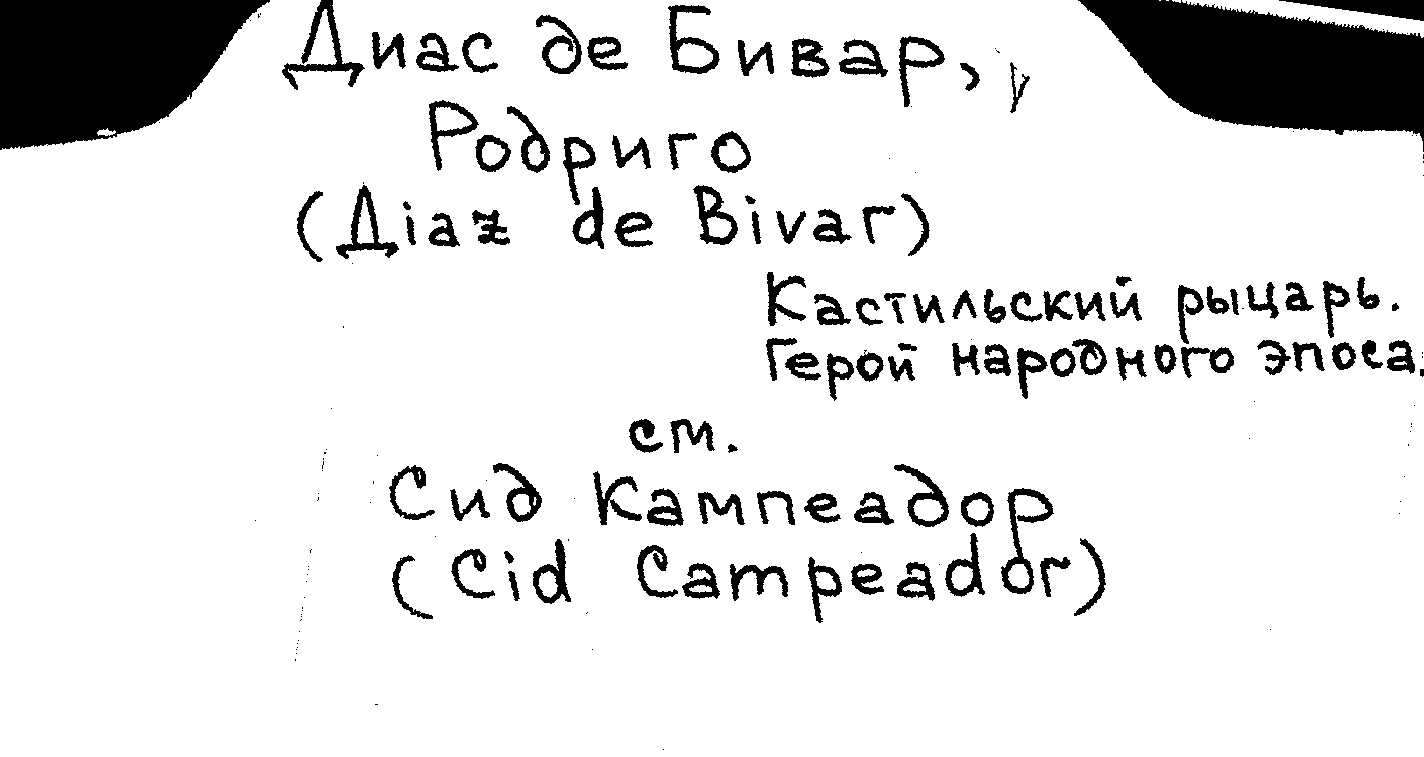 Диас де Бивар,
Родриго
(Діаz de Bivar)
Кастильский рыцарь.
Герой народного эпоса.
см.
Сид Кампеадор
(Cid Campeador)